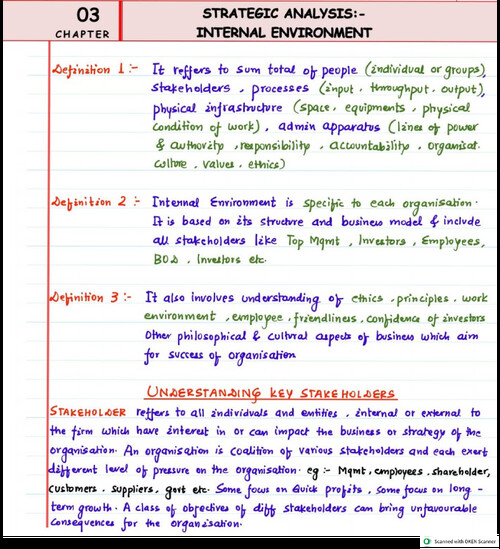 03
CHAPTER
STRATEGIC ANALYSIS:-
INTERNAL ENVIRONMENT
Definition 1 :- It reffers to sum total of people (individual or groups),
stakeholders, processes (input, throughput, output),
physical infrastructure (space, equipments, physical
condition of work), admin apparatus (lines of power
& authority, responsibility, accountability, organisat.
culture, values, ethics)
Definition 2 :- Internal Environment is specific to each organisation.
It is based on its structure and business model & include
all stakeholders like Top Mgmt, Investors, Employees,
BOD, Investors etc.
Definition 3 :- It also involves understanding of ethics, principles, work
environment, employee, friendliness, confidence of investors
Other philosophical & cultural aspects of business which aim
for success of organisation
UNDERSTANDING KEY STAKEHOLDERS
STAKEHOLDER reffers to all individuals and entities, internal or external to
the firm which have interest in or can impact the business or strategy of the
organisation. An organisation is coalition of various stakeholders and each exert
different level of pressure on the organisation. eg :- Mgmt, employees, shareholder,
customers, suppliers, govt etc. Some focus on Quick profits, some focus on long-
term growth. A class of objectives of diff stakeholders can bring unfavourable
consequences for the organisation.
Scanned with OKEN Scanner